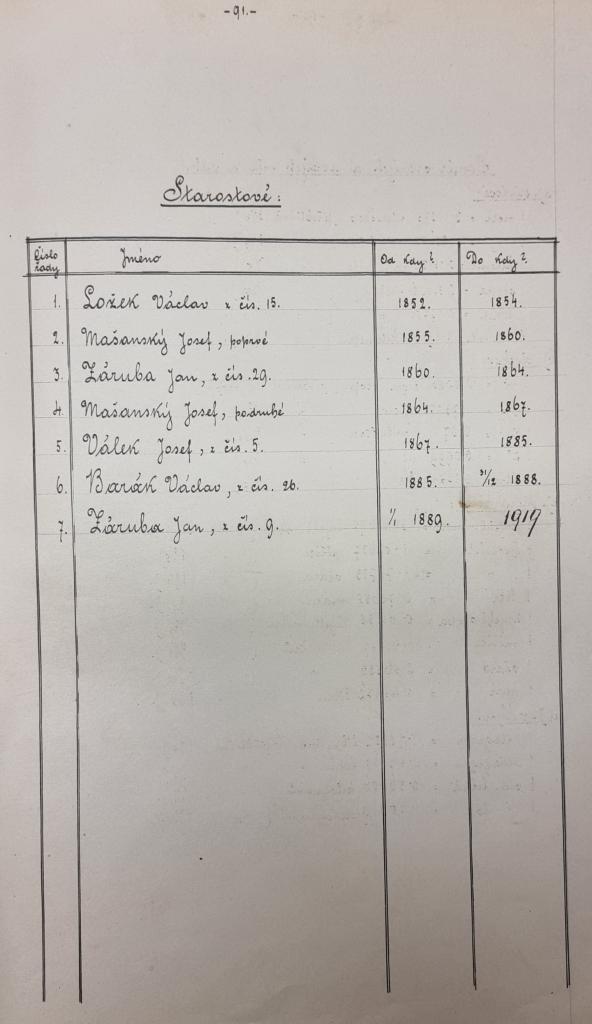 -91.-
Starostové:
Číslo řady Jméno Od kdy? Do kdy?
1. Ložek Václav z čís. 15. 1852. 1854.
2. Mašanský Josef, poprvé 1855. 1860.
3. Záruba Jan, z čís. 29. 1860. 1864.
4. Mašanský Josef, podruhé 1864. 1867.
5. Válek Josef, z čís. 5. 1867. 1885.
6. Barák Václav, z čís. 26. 1885. 31/12 1888.
7. Záruba Jan, z čís. 9. 1/1 1889. 1919